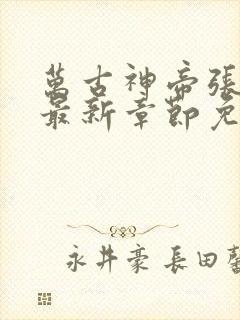 萬古神帝張
最新章節免
永井豪 長田馨